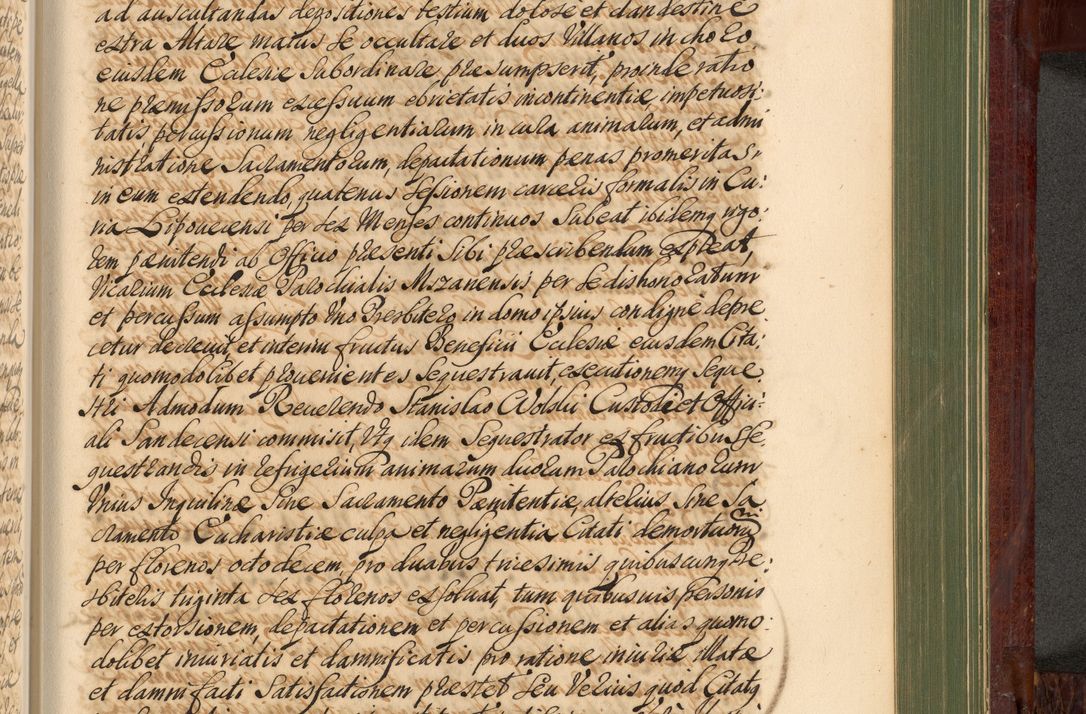 ad auscultandas depositiones testium dolose et clandestine
extra Altare matus se occultare et duos Villanos in choro
eiusdem Ecclesiæ Subordinare, præsumpserit, proinde ratio
ne præmissorum excessuum ebrietatis incontinentiæ, impetuosi:
tatis percussionum negligentiarum in cura animarum, et admi
nistratione Sacramentorum, depactationum pænas promeritas
in eum extendendo, quatenus Sessionem carceris formalis in Cu:
ria Lipovecensi per sex Menses continuos Subeat ibidemq rigo:
rem pænitendi ab Officio præsenti Sibi præscribendum expleat,
Vicarium Ecclesiæ Parochialis Mszanensis per se dishonoratum
et percussum assumpto Vno Presbitero in domo ipsius condigne depre
cetur decrevit, et interim fructus Beneficii Ecclesiæ eiusdem Cita:
ti quomodolibet provenientes Sequestravit, executionemq Seque
stri Admodum Reverendo Stanislao Woldii Custodi et Offici:
ali Sandecensi commisit, Vtq idem Sequestrator ex fructibus se
questrandis in refugerium animarum duorum Parochianorum
Vnius Inquilinæ Sine Sacramento Pænitentiæ, alterius Sine Sa
cramento Eucharistiæ culpa et negligentia Citati demortuorum
per florenos octodecem, pro duabus tricesimis quibuscunq Pre:
sbiteris triginta sex florenos exsolvat, tum quibusvis Personis
per extorsionem, depactationem et percussionem et alias quomo:
dolibet iniuriatis et damnificatis pro ratione iniuriæ illatæ
et damni facti Satisfactionem præstet Seu Verius quod Citatq